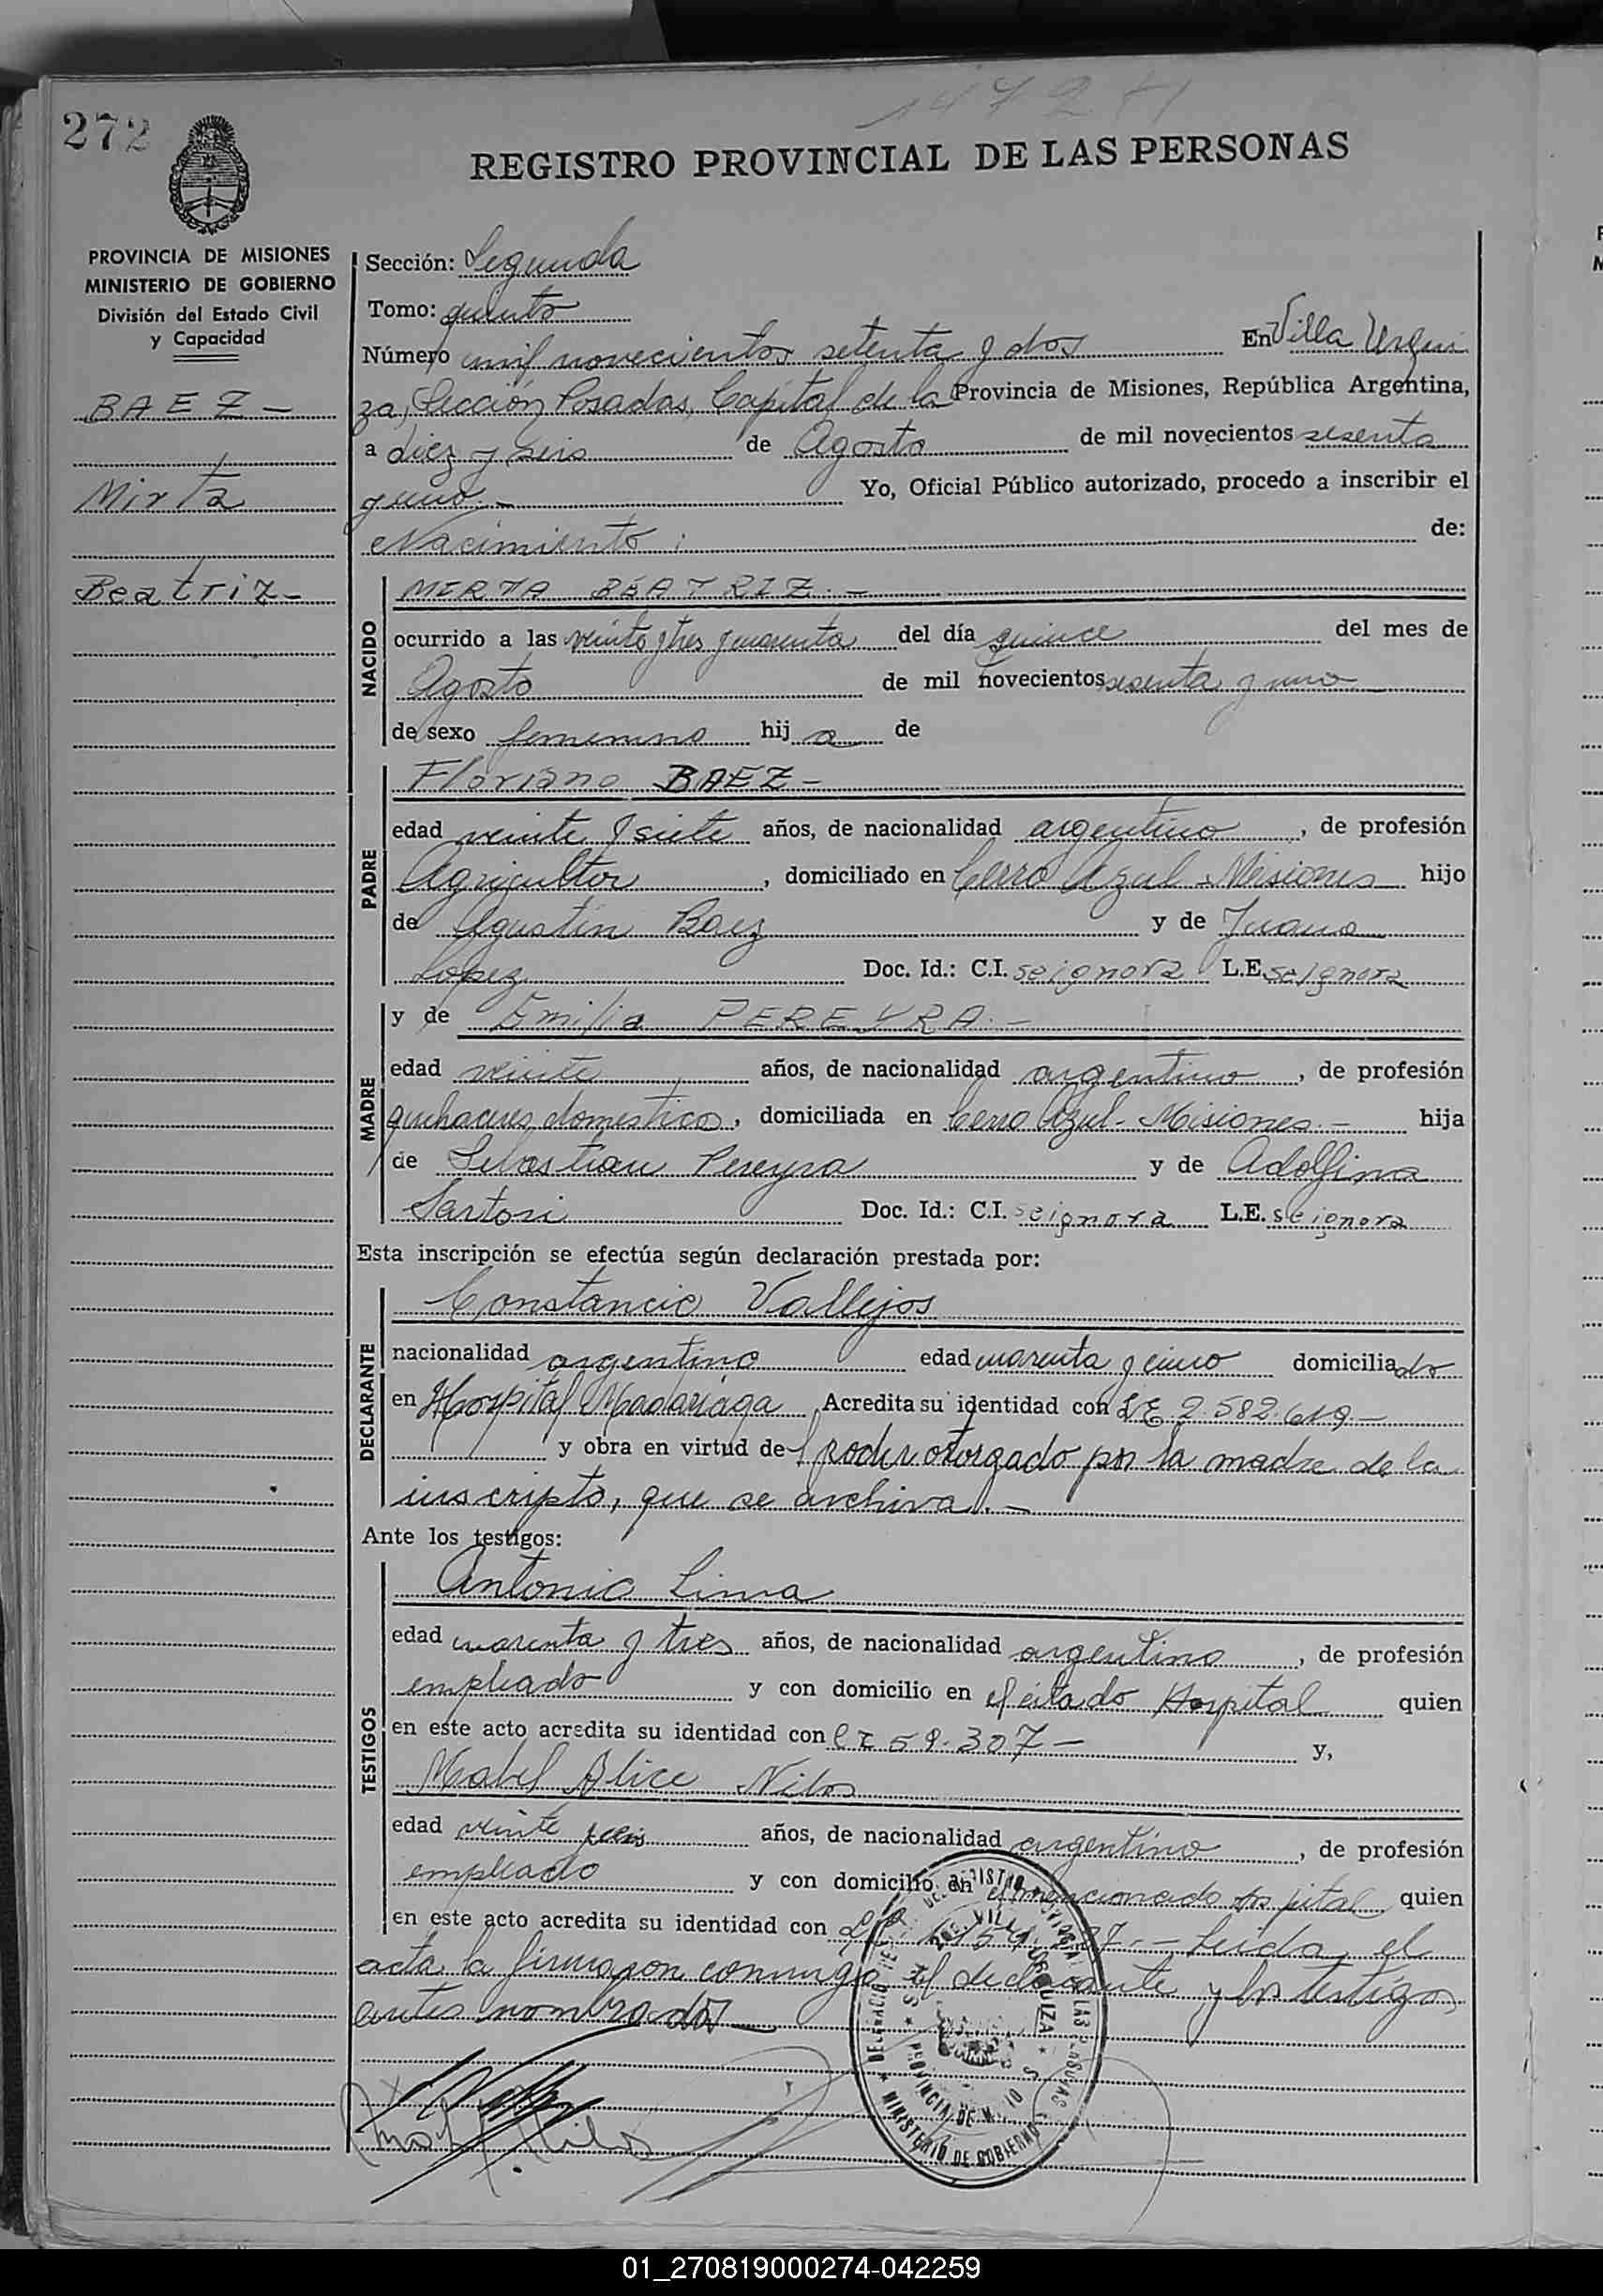 272
REGISTRO PROVINCIAL DE LAS PERSONAS
PROVINCIA DE MISIONES
MINISTERIO DE GOBIERNO
División del Estado Civil
y Capacidad
BAEZ -
Mirta
Beatriz -
Sección: Segunda
Tomo: quinto
Número mil novecientos setenta y dos En Villa Urqui
za, Sección Posadas, Capital de la Provincia de Misiones, República Argentina,
a diez y seis de Agosto de mil novecientos sesenta
y uno.- Yo, Oficial Público autorizado, procedo a inscribir el
Nacimiento : de:
NACIDO
MIRTA BEATRIZ.-
ocurrido a las veinte y tres y cuarenta del día quince del mes de
Agosto de mil novecientos sesenta y uno
de sexo femenino hij a de
PADRE
Floriano BAEZ -
edad veinte y siete años, de nacionalidad argentino, de profesión
Agricultor, domiciliado en Cerro Azul - Misiones hijo
de Agustín Baez y de Juana
Lopez Doc. Id.: C.I. se ignora L.E. se ignora
MADRE
y de Emilia PEREYRA.-
edad veinte años, de nacionalidad argentino, de profesión
quehaceres domestico, domiciliada en Cerro Azul - Misiones.- hija
de Sebastian Pereyra y de Adolfina
Sartori Doc. Id.: C.I. se ignora L.E. se ignora
Esta inscripción se efectúa según declaración prestada por:
DECLARANTE
Constancio Vallejos
nacionalidad argentino edad cuarenta y cinco domiciliado
en Hospital Madariaga Acredita su identidad con LE 2.582.619.-
y obra en virtud del poder otorgado por la madre de la
inscripto, que se archiva.-
Ante los testigos:
TESTIGOS
Antonio Lima
edad cuarenta y tres años, de nacionalidad argentino, de profesión
empleado y con domicilio en el citado Hospital quien
en este acto acredita su identidad con CI 59.307- y,
Mabel Alice Nilos
edad veinte y seis años, de nacionalidad argentino, de profesión
empleado y con domicilio en el mencionado Hospital quien
en este acto acredita su identidad con - Leida, el
acta, la firmaron conmigo el declarante y los testigos
antes nombrados
MINISTERIO DE GOBIERNO
VILLA URQUIZA
01_270819000274-042259